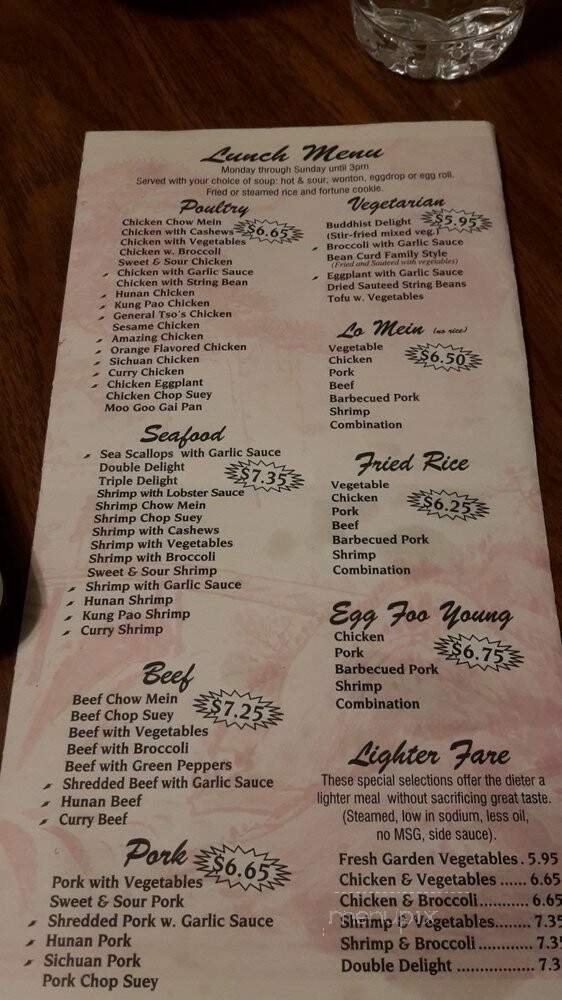 Lunch Menu
Monday through Sunday until 3pm
Served with your choice of soup: hot & sour, wonton, eggdrop or egg roll.
Fried or steamed rice and fortune cookie.
Poultry
$6.65
Chicken Chow Mein
Chicken with Cashews
Chicken with Vegetables
Chicken w. Broccoli
Sweet & Sour Chicken
Chicken with Garlic Sauce
Chicken with String Bean
Hunan Chicken
Kung Pao Chicken
General Tso's Chicken
Sesame Chicken
Amazing Chicken
Orange Flavored Chicken
Sichuan Chicken
Curry Chicken
Chicken Eggplant
Chicken Chop Suey
Moo Goo Gai Pan
Seafood
$7.35
Sea Scallops with Garlic Sauce
Double Delight
Triple Delight
Shrimp with Lobster Sauce
Shrimp Chow Mein
Shrimp Chop Suey
Shrimp with Cashews
Shrimp with Vegetables
Shrimp with Broccoli
Sweet & Sour Shrimp
Shrimp with Garlic Sauce
Hunan Shrimp
Kung Pao Shrimp
Curry Shrimp
Beef
$7.25
Beef Chow Mein
Beef Chop Suey
Beef with Vegetables
Beef with Broccoli
Beef with Green Peppers
Shredded Beef with Garlic Sauce
Hunan Beef
Curry Beef
Pork
$6.65
Pork with Vegetables
Sweet & Sour Pork
Shredded Pork w. Garlic Sauce
Hunan Pork
Sichuan Pork
Pork Chop Suey
Vegetarian
$5.95
Buddhist Delight
(Stir-fried mixed veg.)
Broccoli with Garlic Sauce
Bean Curd Family Style
(Fried and Sauteed with vegetables)
Eggplant with Garlic Sauce
Dried Sauteed String Beans
Tofu w. Vegetables
Lo Mein (no rice)
$6.50
Vegetable
Chicken
Pork
Beef
Barbecued Pork
Shrimp
Combination
Fried Rice
$6.25
Vegetable
Chicken
Pork
Beef
Barbecued Pork
Shrimp
Combination
Egg Foo Young
$6.75
Chicken
Pork
Barbecued Pork
Shrimp
Combination
Lighter Fare
These special selections offer the dieter a
lighter meal without sacrificing great taste.
(Steamed, low in sodium, less oil,
no MSG, side sauce).
Fresh Garden Vegetables . 5.95
Chicken & Vegetables ...... 6.65
Chicken & Broccoli........... 6.65
Shrimp & Vegetables........ 7.35
Shrimp & Broccoli............ 7.35
Double Delight ................. 7.3
menupix